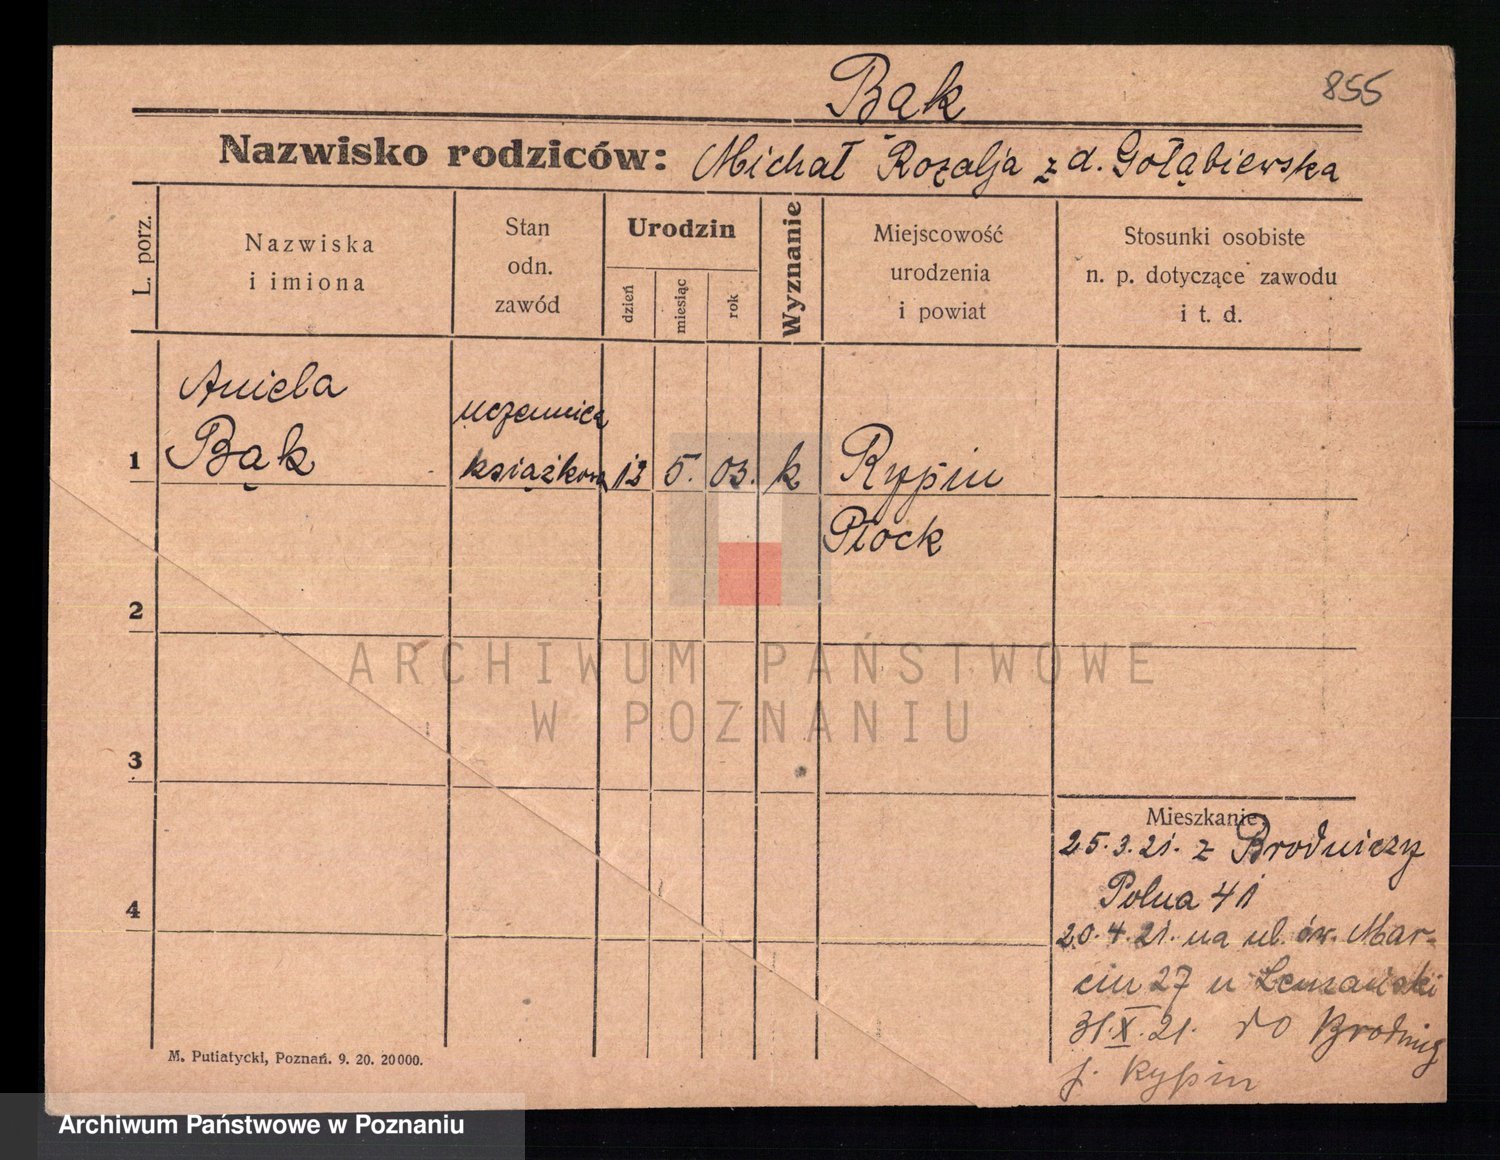 Bąk
855
Nazwisko rodziców: Michał Rozalja z d. Gołąbiewska
L. porz.
Nazwiska
i imiona
Stan
odn.
zawód
Urodzin
dzień
miesiąc
rok
Wyznanie
Miejscowość
urodzenia
i powiat
Stosunki osobiste
n. p. dotyczące zawodu
i t. d.
1
Aniela
Bąk
uczennica
książkowa
13
5.
03.
k
Rypin
Płock
2
3
4
Mieszkanie
25.3.21. z Brodniczy
Polna 41
20.4.21. na ul. św. Mar-
cin 27 u
31.X.21. do Brodnicy
p. Rypin
M. Putiatycki, Poznań. 9. 20. 20000.
ARCHIWUM PAŃSTWOWE
W POZNANIU
Archiwum Państwowe w Poznaniu